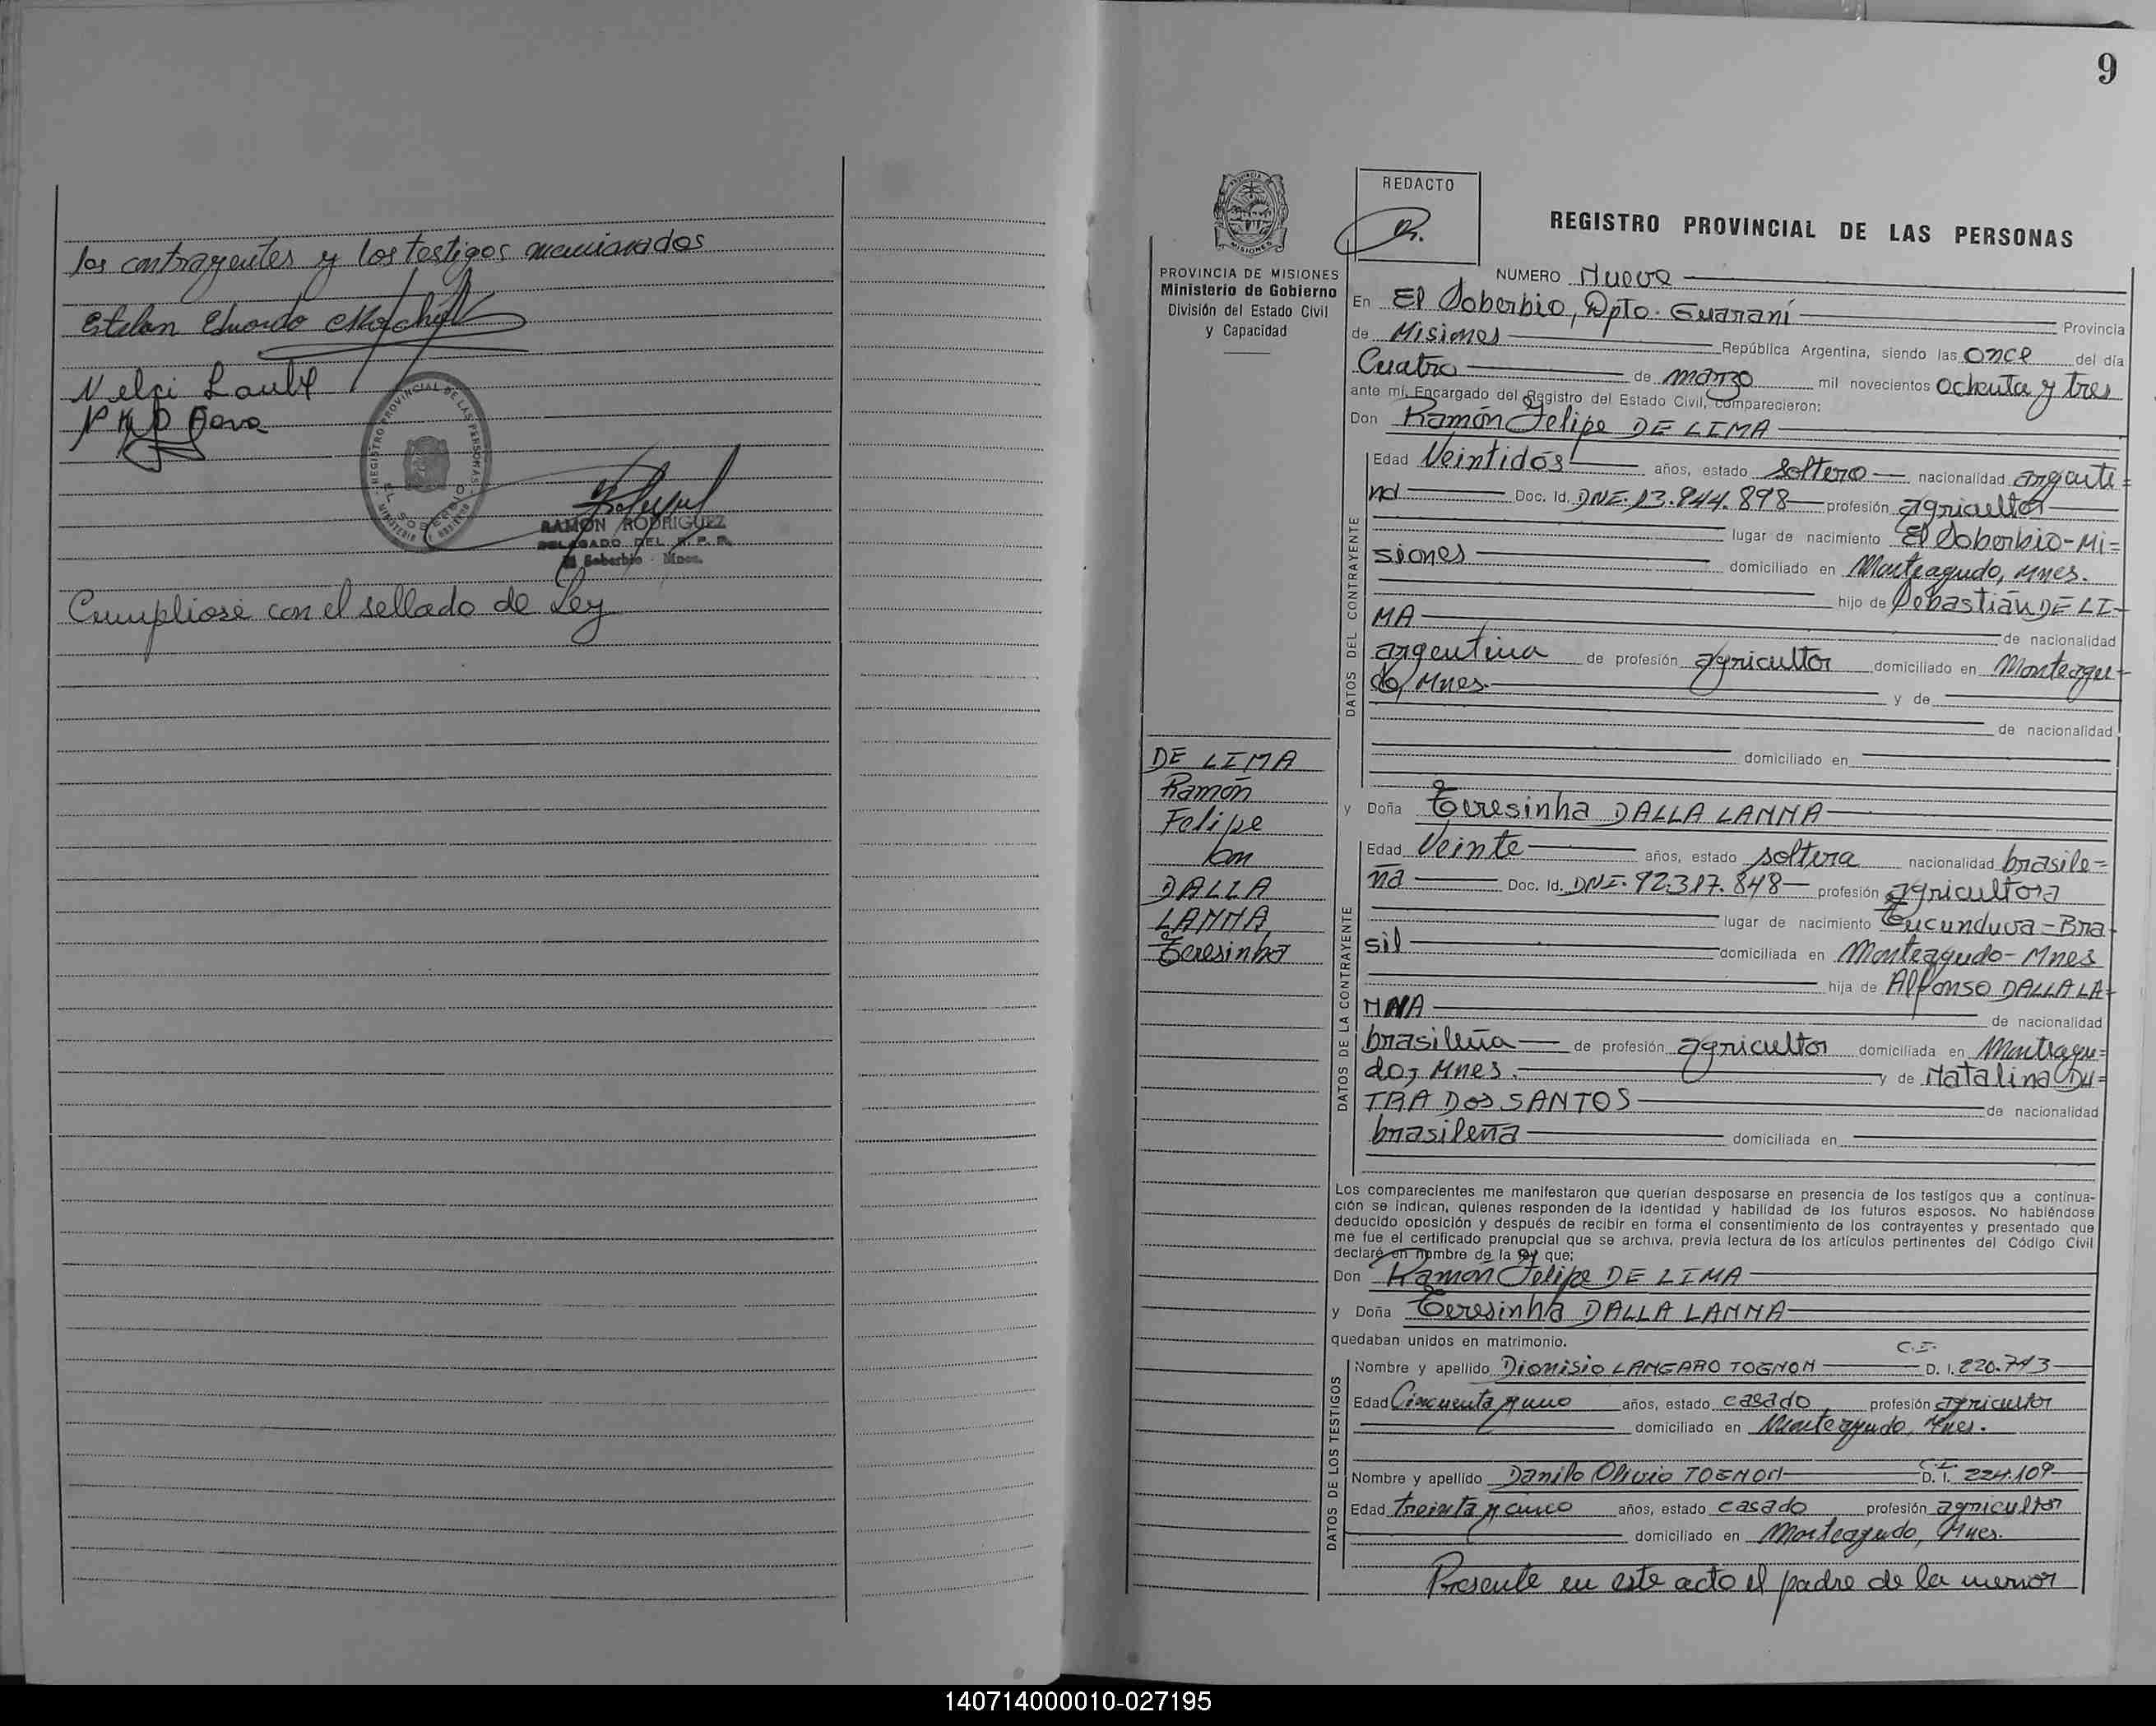 los contrayentes y los testigos mencionados
Nelci
REGISTRO PROVINCIAL DE LAS PERSONAS
EL SOBERBIO
RAMON RODRIGUEZ
DELEGADO DEL R. P. P.
El Soberbio - Mnes.
Cumpliose con el sellado de Ley
9
REDACTO
REGISTRO PROVINCIAL DE LAS PERSONAS
MISIONES
PROVINCIA DE MISIONES
Ministerio de Gobierno
División del Estado Civil
y Capacidad
DE LIMA
Ramón
Felipe
con
DALLA
LANNA,
Teresinha
NUMERO Nueve
En El Soberbio, Dpto. Guaraní Provincia
de Misiones República Argentina, siendo las once del día
Cuatro de marzo mil novecientos ochenta y tres
ante mí, Encargado del Registro del Estado Civil, comparecieron:
Don Ramón Felipe DE LIMA
DATOS DEL CONTRAYENTE
Edad Veintidós años, estado soltero nacionalidad argenti=
na Doc. Id. DNI. 13.844.898 profesión agricultor
lugar de nacimiento El Soberbio-Mi=
siones domiciliado en Monteagudo, Mnes.
hijo de Sebastián DE LI-
MA de nacionalidad
argentina de profesión agricultor domiciliado en Monteagu-
do, Mnes. y de
de nacionalidad
domiciliado en
y Doña Teresinha DALLA LANNA
DATOS DE LA CONTRAYENTE
Edad Veinte años, estado soltera nacionalidad brasile=
ña Doc. Id. DNI. 92.317.848 profesión agricultora
lugar de nacimiento Tucunduva-Bra-
sil domiciliada en Monteagudo-Mnes
hija de Alfonso DALLA LA-
NNA de nacionalidad
brasileña de profesión agricultor domiciliada en Monteagu=
do, Mnes. y de Natalina DU=
TRA DOS SANTOS de nacionalidad
brasileña domiciliada en
Los comparecientes me manifestaron que querían desposarse en presencia de los testigos que a continua-
ción se indican, quienes responden de la identidad y habilidad de los futuros esposos. No habiéndose
deducido oposición y después de recibir en forma el consentimiento de los contrayentes y presentado que
me fue el certificado prenupcial que se archiva, previa lectura de los artículos pertinentes del Código Civil
declaré en nombre de la ley que;
Don Ramón Felipe DE LIMA
y Doña Teresinha DALLA LANNA
quedaban unidos en matrimonio.
DATOS DE LOS TESTIGOS
C.I.
Nombre y apellido Dionisio LANGARO TOGNON D. I. 220.743
Edad Cincuenta y uno años, estado casado profesión agricultor
domiciliado en Monteagudo, Mnes.
C.I.
Nombre y apellido Danilo Olivio TOGNON D. I. 224.109
Edad treinta y cinco años, estado casado profesión agricultor
domiciliado en Monteagudo, Mnes.
Presente en este acto el padre de la menor
140714000010-027195